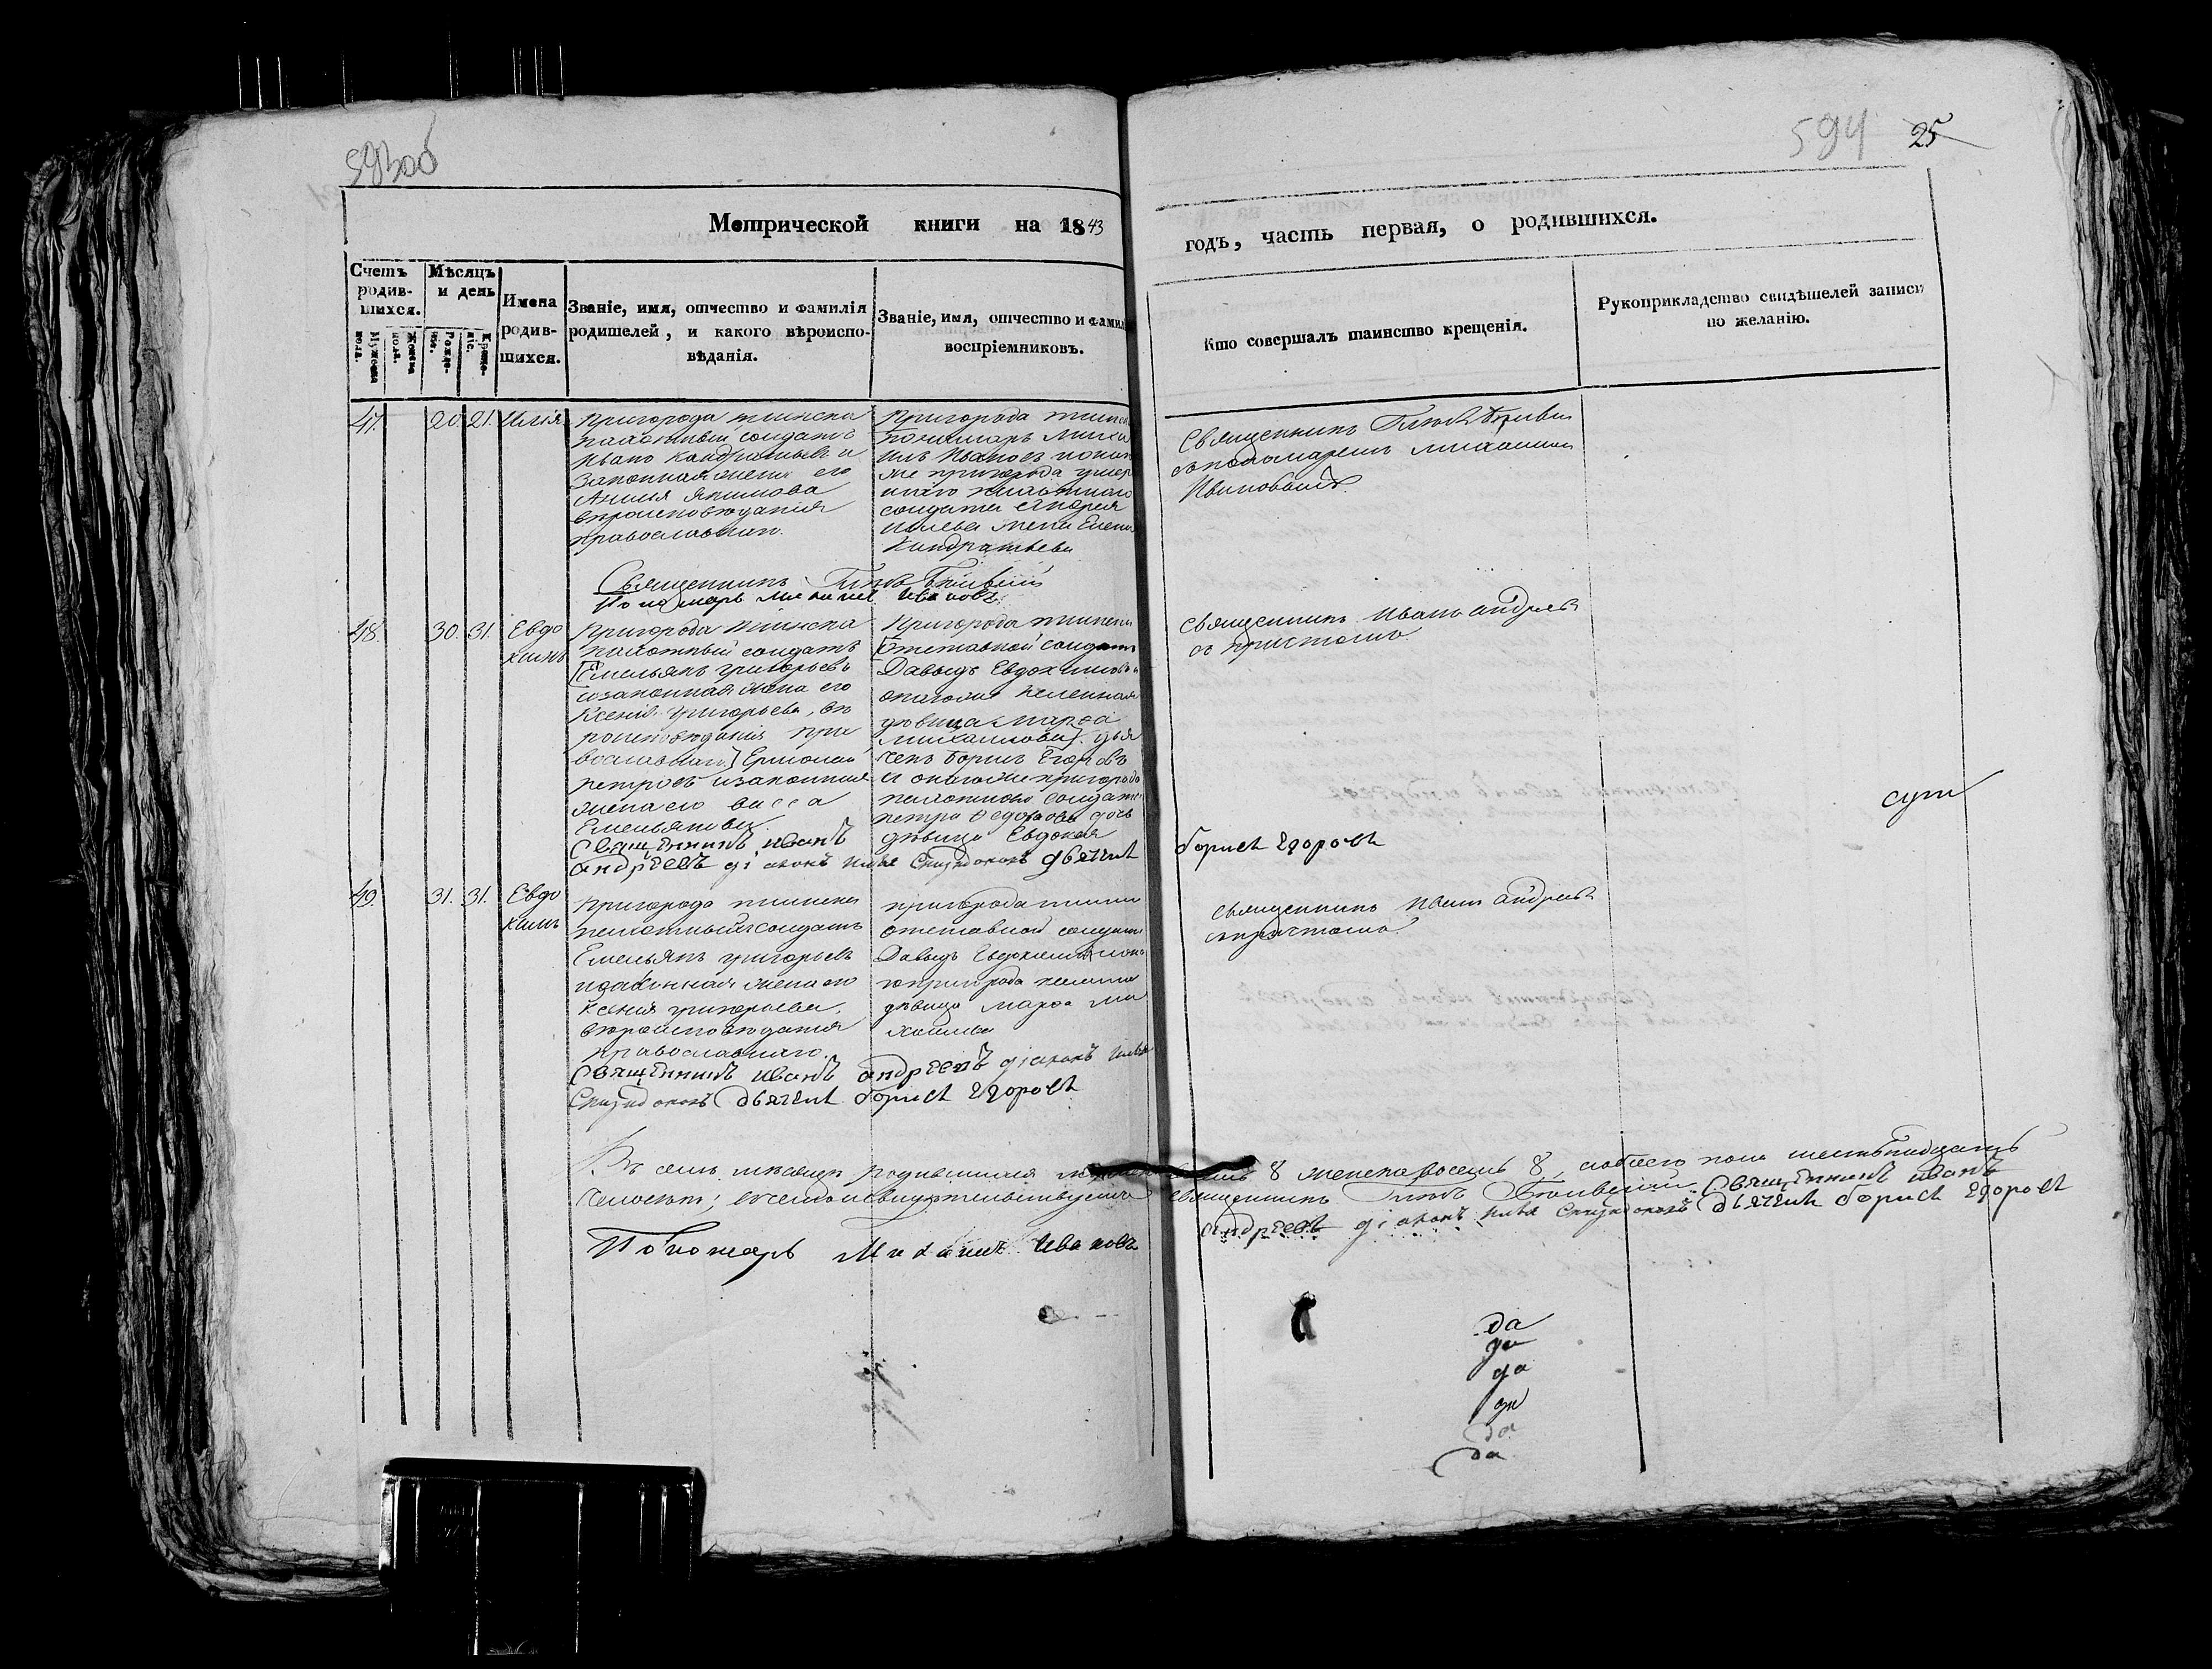 593об
594 25
Метрической книги на 1843
годъ, часть первая, о родившихся.
Счетъ родив-шихся.
Мужеска пола.
Женска пола.
Мѣсяцъ и день
Рожде-нія.
Креще-нія.
Имена родив-шихся.
Званіе, имя, отчество и фамилія
родителей, и какого вѣроиспо-
вѣданія.
Званіе, имя, отчество и фамил
воспріемниковъ.
Кто совершалъ таинство крещенія.
Рукоприкладство свидѣтелей записи
по желанію.
47. 20. 21. Илія
Пригорода тиинска
пахотный солдатъ
Иванъ Кандратьевъ и
законная жена его
Анисия Якимова
вѣроисповѣдания
православнаго.
Пригорода тиинс
пономарь Миха
илъ Ивановъ
же пригорода умер
шаго пахотнаго
солдата Андрея
жена Елена
Кандратьева
Священникъ
съ пономаремъ михаиломъ
Ивановымъ.
Священникъ
Пономарь Михаилъ Ивановъ
48. 30. 31. Евдо
кимъ
Пригорода тиинска
пахотный солдатъ
[Емельянъ григорьевъ
и законная жена его
Ксения григорьева, вѣ
роисповѣдания пра
вославнаго] Ермолай
петровъ и законная
жена его васса
Емельянова.
Пригорода тиинска
[отставной солдатъ
Давыдъ Евдокимовъ и
келейная
девица марфа
михаилова]. дья
чекъ Борисъ Егоровъ
и пригорода
пахотнаго солдата
петра Федорова дочь
дѣвица Евдокея
священникъ Иванъ андреевъ
съ причтомъ
суть
Священникъ иванъ
андреевъ діаконъ илья дьячекъ борисъ Егоровъ
49. 31. 31. Евдо
кимъ
Пригорода тиинска
пахотный солдатъ
Емельянъ григорьевъ
и законная жена его
Ксения григорьева,
вероисповедания
православнаго.
пригорода тиинска
отставной солдатъ
Давыдъ Евдокимовъ
пригорода
дѣвица марфа ми
хаилова
священникъ Иванъ андреевъ
съ причтомъ.
Священникъ иванъ андреевъ діаконъ илья
дьячекъ борисъ Егоровъ
Въ семъ мѣсяцѣ родившихся 8 женска восемь 8, обоего пола шестьнадцать
человекъ; въ чемъ и свидѣтельствуемъ священникъ Священникъ иванъ
андреевъ діаконъ илья дьячекъ борисъ Егоровъ
Пономарь Михаилъ Ивановъ
да
да
да
да
да
да